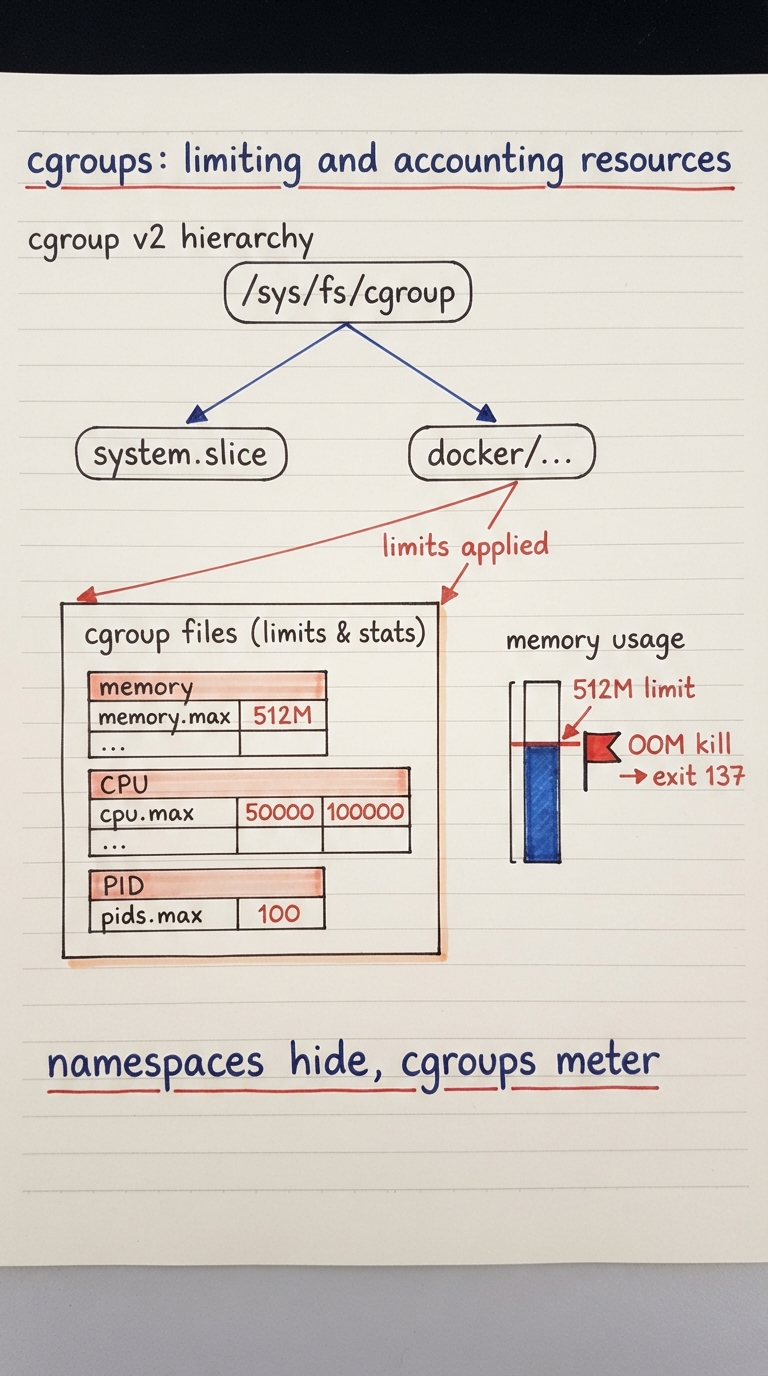 cgroups: limiting and accounting resources
cgroup v2 hierarchy
/sys/fs/cgroup
system.slice
docker/...
limits applied
cgroup files (limits & stats)
memory
memory.max 512M
...
CPU
cpu.max 50000 100000
...
PID
pids.max 100
memory usage
512M limit
OOM kill
→ exit 137
namespaces hide, cgroups meter